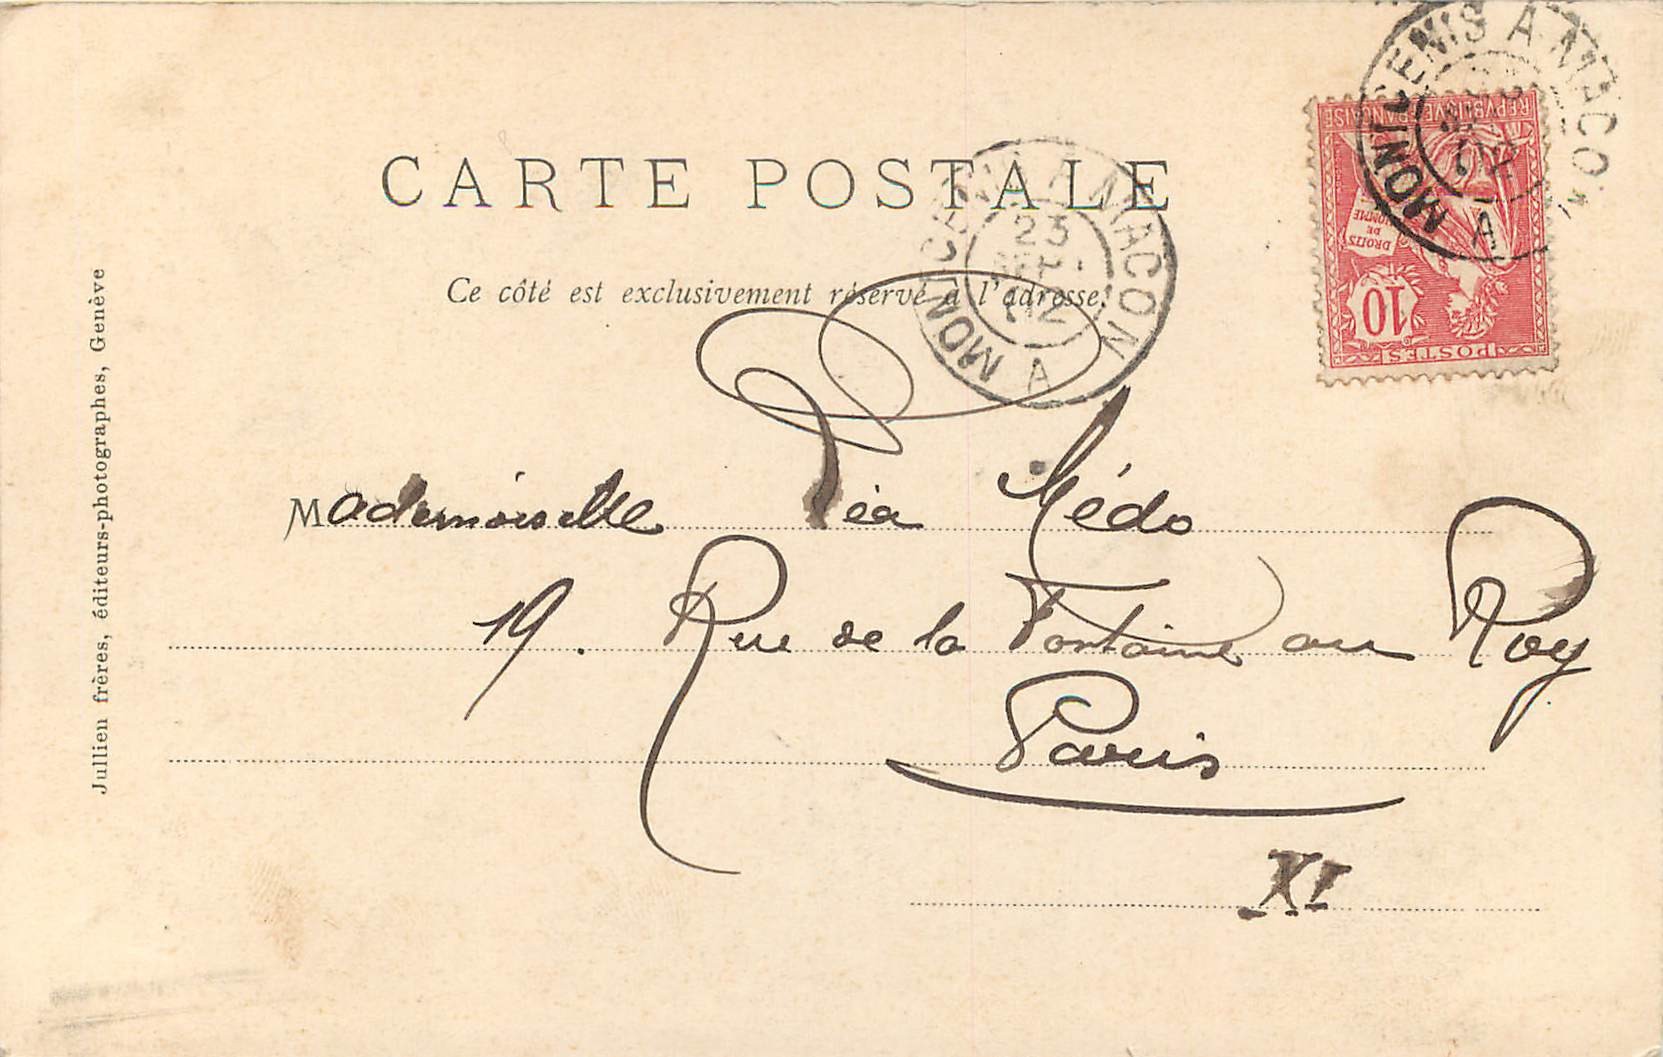 CARTE POSTALE
Ce côté est exclusivement réservé à l'adresse.
MONTCENIS A MACON
23
SEPT
02
A
MONTCENIS A MACON
02
A
REPVBLIQVE FRANÇAISE
DROITS
DE
L'HOMME
10
POSTES
Mademoiselle Léa Médo
19. Rue de la Fontaine au Roy
Paris
XI
Jullien frères, éditeurs-photographes, Genève